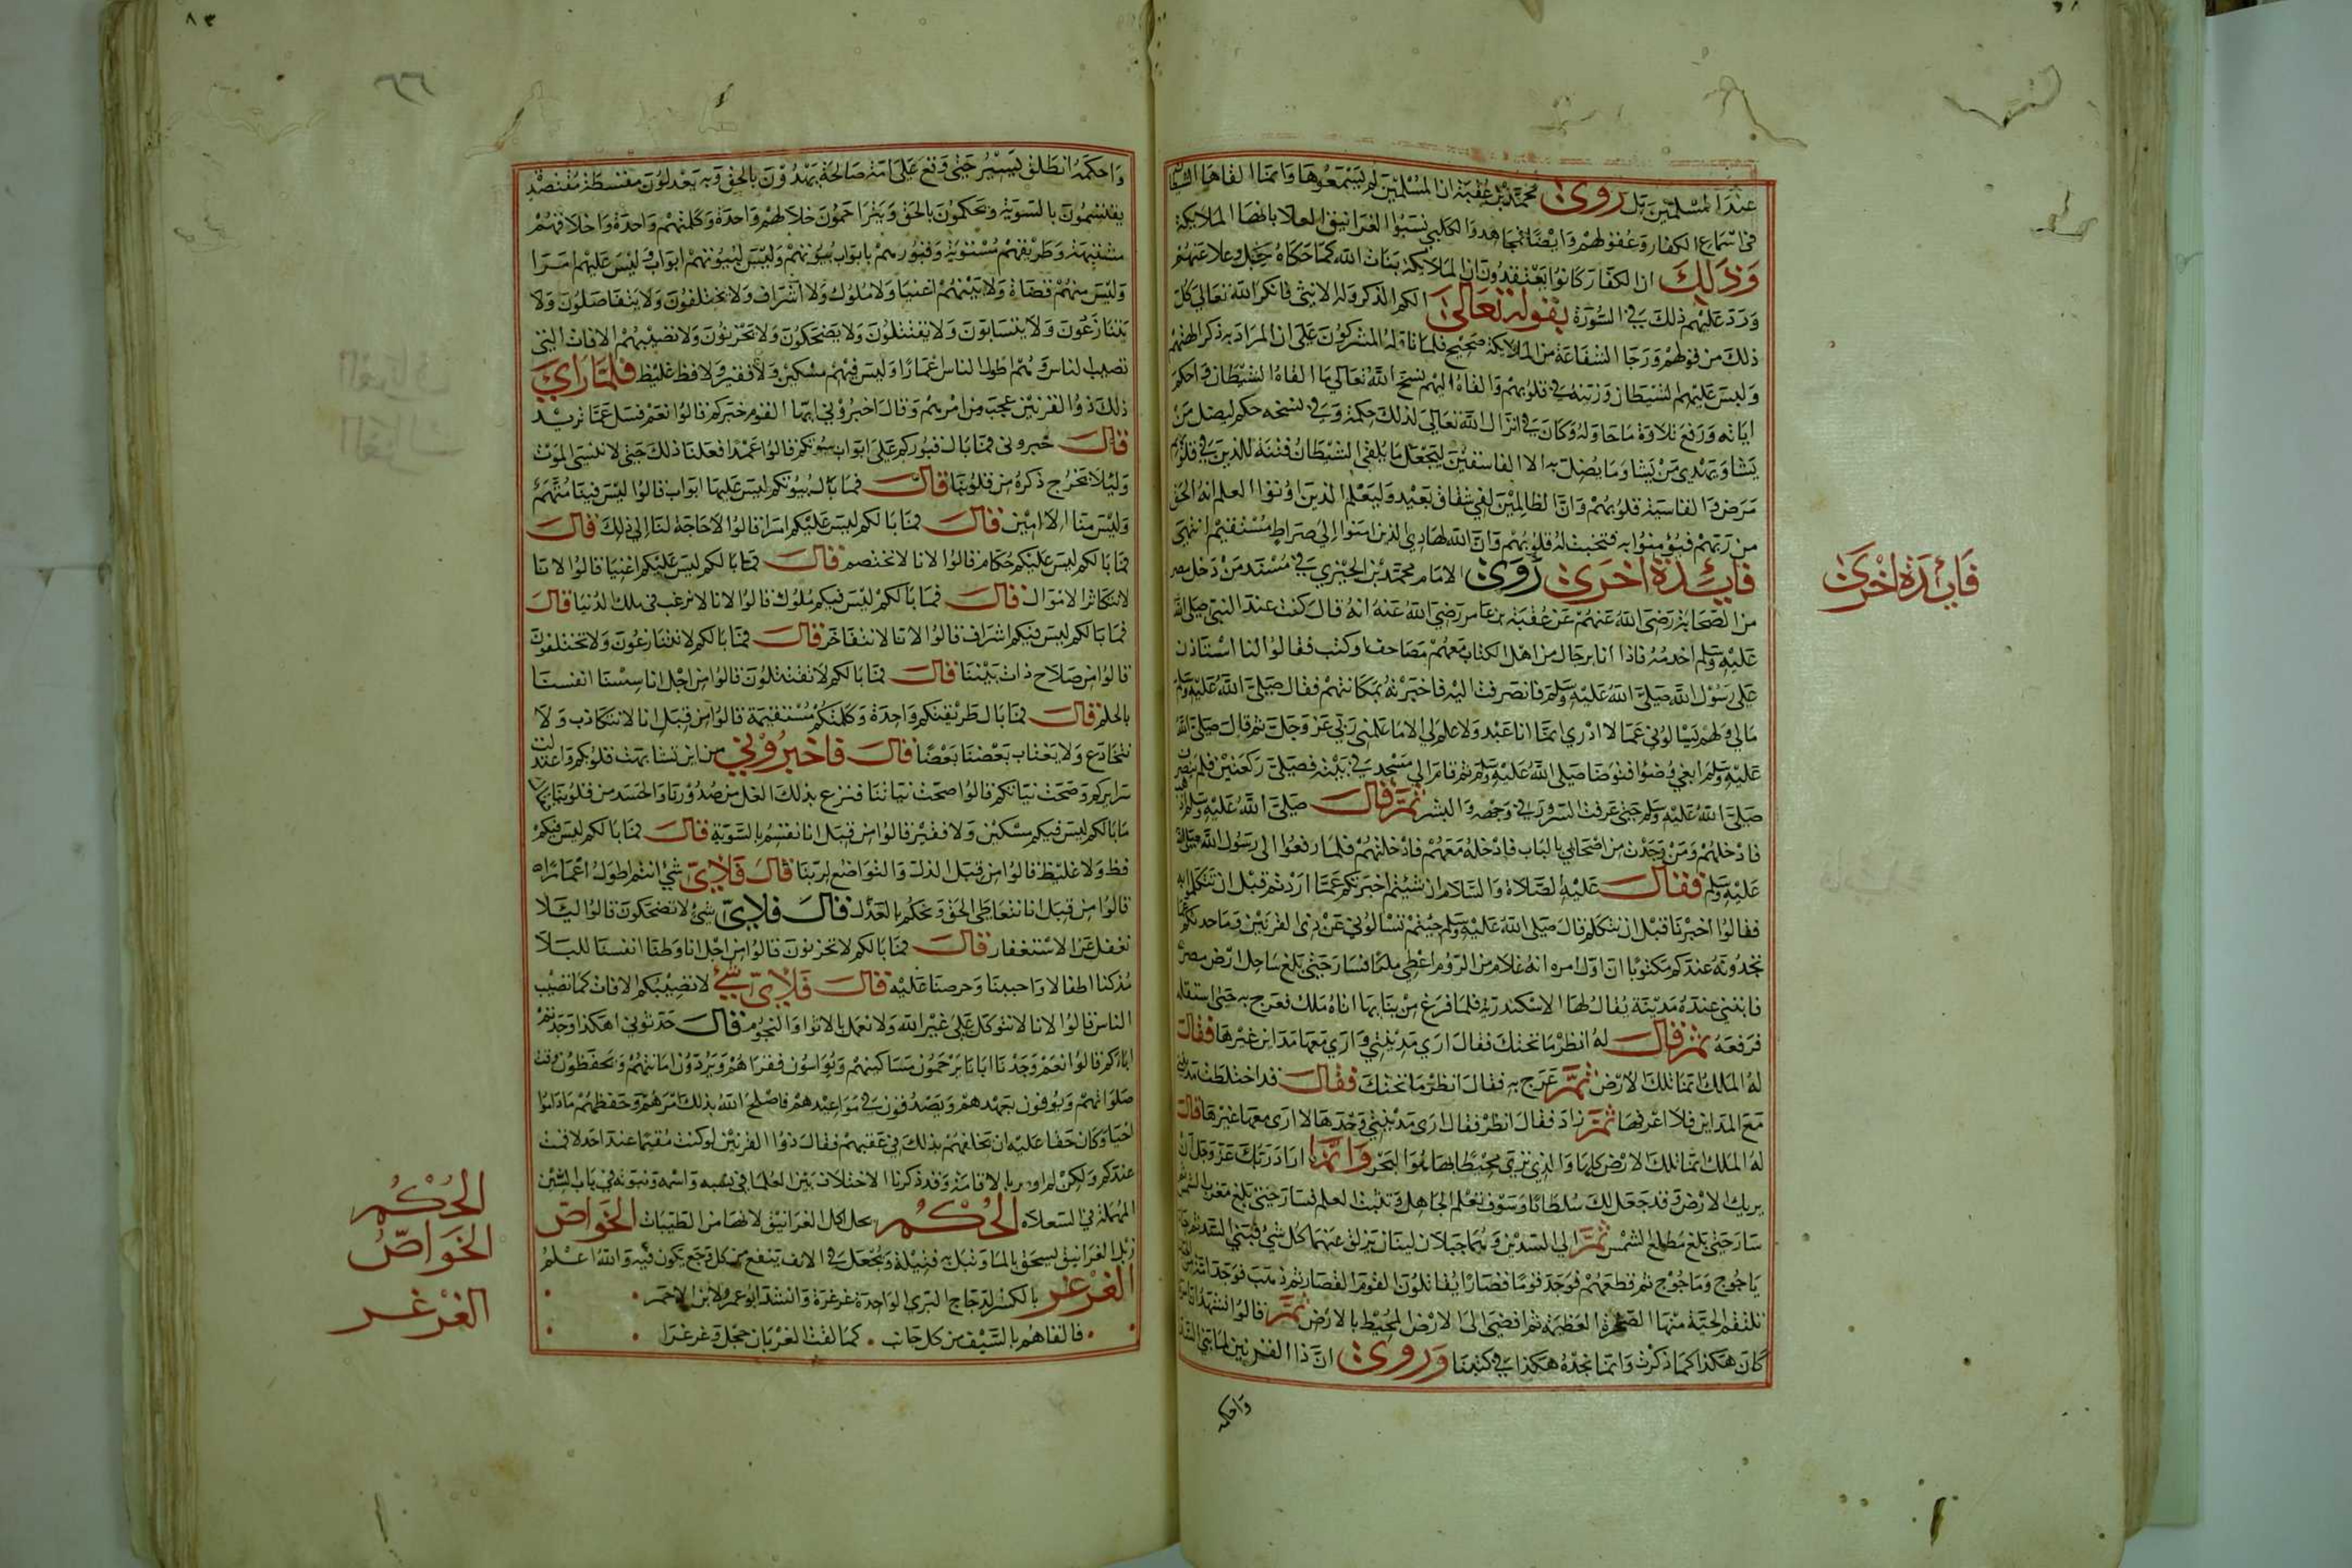 عند المسلمين بل روى محمد بن عقبة ان المسلمين لم يسمعوها وانما القاها الشيطان
في اسماع الكفار وعقولهم وايضا فمجاهد والكلبي نسبوا الغرانيق العلا بانها الملايكة
وذلك ان الكفار كانوا يعتقدون ان الملايكة بنات الله كما حكاه جل وعلا عنهم
ورد عليهم ذلك في السورة بقوله تعالى الكم الذكر وله الانثى فانكر الله تعالى كل
ذلك من قولهم ورجا الشفاعة من الملايكة صحيح فلما تاوله المشركون على ان المراد به ذكر الهتهم
ولبس عليهم الشيطان وزينه في قلوبهم والقاه اليهم نسخ الله تعالى ما القاه الشيطان واحكم
اياته ورفع تلاوة ما حاوله وكان في انزال الله تعالى لذلك حكمة وفي نسخه حكم ليضل من
يشا ويهدي من يشا وما يضل به الا الفاسقين ليجعل ما يلقي الشيطان فتنة للذين في قلوبهم
مرض والقاسية قلوبهم وان الظالمين لفي شقاق بعيد وليعلم الذين اوتوا العلم انه الحق
من ربهم فيؤمنوا به فتخبت له قلوبهم وان الله لهادي الذين امنوا الى صراط مستقيم انتهى
فايدة اخرى روى الامام محمد بن الجيزي في مسند من دخل مصر
من الصحابة رضي الله عنهم عن عقبة بن عامر رضي الله عنه انه قال كنت عند النبي صلى الله
عليه وسلم اخدمه فاذا انا برجال من اهل الكتاب معهم مصاحف او كتب فقالوا لنا استاذن
على رسول الله صلى الله عليه وسلم فانصرفت اليه فاخبرته بمكانتهم فقال صلى الله عليه وسلم
مالي ولهم يسالوني عما لا ادري انما انا عبد ولا علم لي الا ما علمني ربي عز وجل ثم قال صلى الله
عليه وسلم ابغني وضوا فتوضا صلى الله عليه وسلم ثم قام الى مسجد في بيته فصلى ركعتين فلم ينصرف
صلى الله عليه وسلم حتى عرفت السرور في وجهه والبشر ثم قال صلى الله عليه وسلم
فادخلهم ومن وجدت من اصحابي بالباب فادخله معهم فادخلتهم فلما رفعوا الى رسول الله صلى الله
عليه وسلم فقال عليه الصلاة والسلام ان شيتم اخبرتكم عما اردتم قبل ان تتكلموا به
فقالوا اخبرنا قبل ان نتكلم قال صلى الله عليه وسلم جيتم تسالوني عن ذي القرنين وما حدثكم عما
تجدونه عندكم مكتوبا ان اول امره انه غلام من الروم اعطي ملكا فسار حتى بلغ ساحل ارض مصر
فابتنى عنده مدينة يقال لها الاسكندرية فلما فرغ من بنايها اتاه ملك فعرج به حتى استقله
فرفعه ثم قال له انظر ما تحتك فقال ارى مدينتي وارى معها مداين غيرها فقال
له الملك انما تلك الارض ثم عرج به فقال انظر ما تحتك فقال قد اختلطت مدينتي
مع المداين فلا اعرفها ثم زاد فقال انظر فقال ارى مدينتي وحدها لا ارى معها غيرها قال
له الملك انما تلك الارض كلها والذي ترى محيطا بها هو البحر وانما اراد ربك عز وجل ان
يريك الارض وقد جعل لك سلطانا وسوف تعلم الجاهل وتثبت العلم فسار حتى بلغ مغرب الشمس ثم
سار حتى بلغ مطلع الشمس ثم الى السدين وهما جبلان لينان يزلق عنهما كل شي فبنى السد ثم جا
ياجوج وماجوج ثم قطعهم فوجد قوما قصارا يقاتلون القوم القصار ثم ذهب فوجد امة من
تلتقم الحية منها الصخرة العظيمة ثم افضى الى الارض المحيط بالارض ثم قالوا نشهد ان امره
كان هكذا كما ذكرت وانما نجده هكذا في كتبنا وروى ان ذا القرنين لما بنى السد
واحكمه
فايدة اخرى
واحكمه انطلق يسير حتى وقع على امة صالحة يهدون بالحق وبه يعدلون مقسطة مقتصدة
يقتسمون بالسوية ويحكمون بالحق ويتراحمون حالهم واحدة وكلمتهم واحدة واخلاقهم
مشتبهة وطريقتهم مستوية وقبورهم بابواب بيوتهم وليس لبيوتهم ابواب وليس عليهم امرا
وليس منهم قضاة ولا بينهم اغنيا ولا ملوك ولا اشراف ولا يختلفون ولا يتفاضلون ولا
يتنازعون ولا يتسابون ولا يقتتلون ولا يضحكون ولا تحزنون ولا تصيبهم الافات التي
تصيب الناس وهم اطول الناس اعمارا وليس فيهم مسكين ولا فقير ولا فظ غليظ فلما راى
ذلك ذو القرنين عجب من امرهم وقال اخبروني ايها القوم خبركم قالوا نعم فسل عما تريد
قال خبروني فما بال قبوركم على ابواب بيوتكم قالوا عمدا فعلنا ذلك حتى لا ننسى الموت
وليلا يخرج ذكره من قلوبنا قال فما بال بيوتكم ليس عليها ابواب قالوا ليس فينا متهم
وليس منا الا امين قال فما بالكم ليس عليكم امرا قالوا لا حاجة لنا الى ذلك قال
فما بالكم ليس عليكم حكام قالوا لانا لا نختصم قال فما بالكم ليس عليكم اغنيا قالوا لانا
لا نتكاثر الاموال قال فما بالكم ليس فيكم ملوك قالوا لانا لا نرغب في ملك الدنيا قال
فما بالكم ليس فيكم اشراف قالوا لانا لا نتفاخر قال فما بالكم لا تتنازعون ولا تختلفون
قالوا من صلاح ذات بيننا قال فما بالكم لا تقتتلون قالوا من اجل انا سسنا انفسنا
بالحلم قال فما بال طريقتكم واحدة وكلمتكم مستقيمة قالوا من قبل انا لا نتكاذب ولا
نتخادع ولا يغتاب بعضنا بعضا قال فاخبروني من اين تشابهت قلوبكم واعتدلت
سرايركم وصحت نياتكم قالوا صحت نياتنا فنزع بذلك الغل من صدورنا والحسد من قلوبنا
ما بالكم ليس فيكم مسكين ولا فقير قالوا من قبل انا نقتسم بالسوية قال فما بالكم ليس فيكم
فظ ولا غليظ قالوا من قبل الذلة والتواضع لربنا قال فلاي شي انتم اطول اعمارا
قالوا من قبل انا نتعاطى الحق ونحكم بالعدل قال فلاي شي لا تضحكون قالوا ليلا
نغفل عن الاستغفار قال فما بالكم لا تحزنون قالوا من اجل انا وطنا انفسنا للبلا
مذ كنا اطفالا واحببنا وحرصنا عليه قال فلاي شي لا تصيبكم الافات كما تصيب
الناس قالوا لانا لا نتوكل على غير الله ولا نعمل بالانوا والنجوم قال حدثوني اهكذا وجدتم
اباكم قالوا نعم وجدنا ابانا يرحمون مساكينهم ويواسون فقراهم ويردون امانتهم ويحفظون وقت
صلواتهم ويوفون بعهدهم ويصدقون في مواعيدهم فاصلح الله بذلك امرهم وحفظهم ماداموا
احيا وكان حقا عليه ان يخلفهم بذلك في عقبهم فقال ذو القرنين لو كنت مقيما عند احد لاقمت
عندكم ولكن لم اومر بالاقامة وقد ذكرنا الاختلاف بين العلما في نسبه واسمه ونبوته في باب السين
المهملة في السعلاه الحكم يحل اكل الغرانيق لانها من الطيبات الخواص
زبل الغرانيق يسحق بالما وتبل به فتيلة وتجعل في الانف ينفع من كل وجع يكون فيه والله اعلم
الغرغر بالكسر لدجاج البري الواحدة غرغرة وانشد ابو عمرو لابن الاحمر
فالفاهم بالسيف من كل جانب كما لفت العربان حجل وغرغرا
الحكم
الخواص
الغرغر